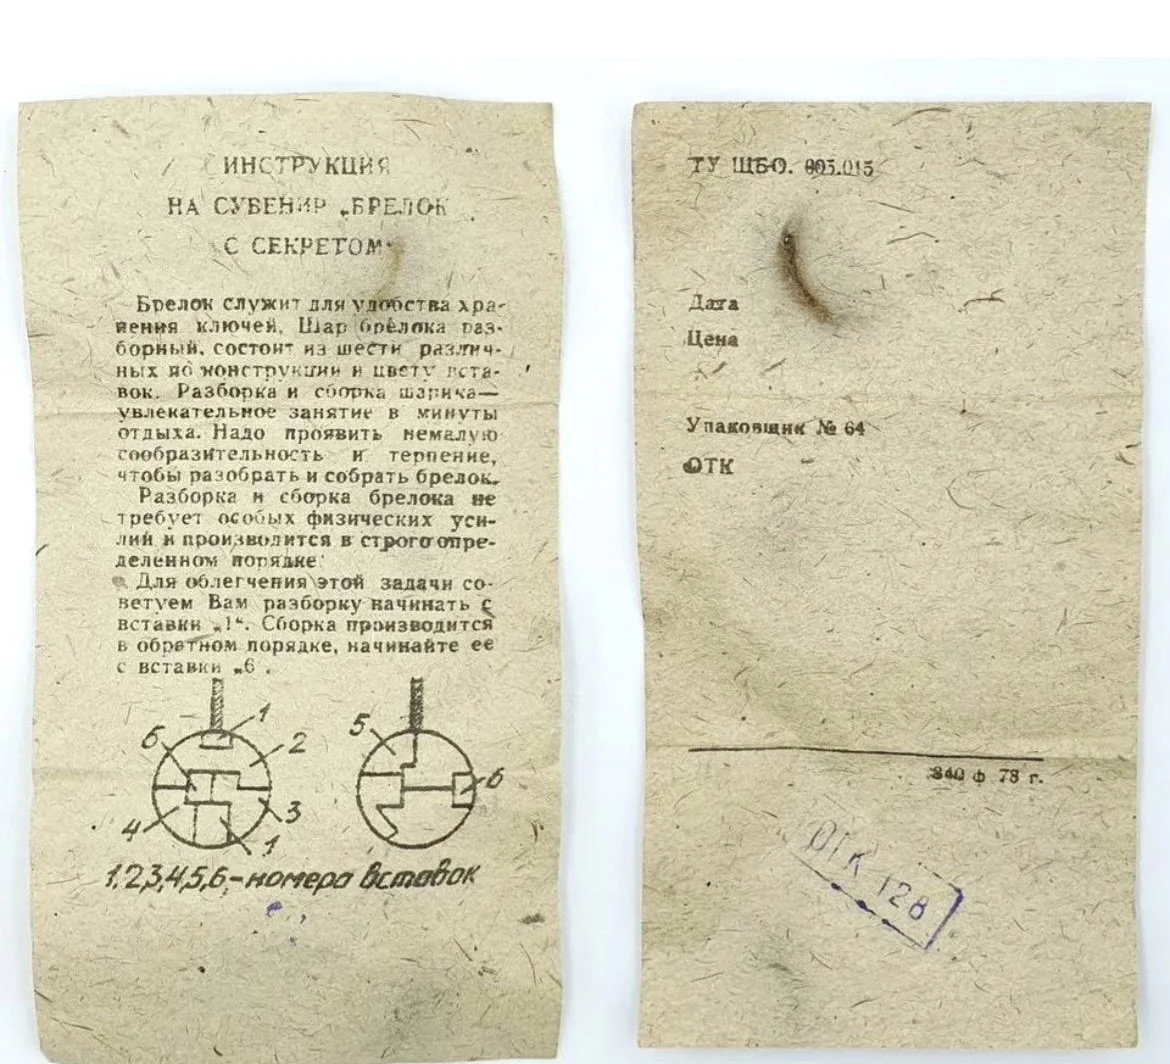 ИНСТРУКЦИЯ
НА СУВЕНИР „БРЕЛОК
С СЕКРЕТОМ“
Брелок служит для удобства хра-
нения ключей. Шар брелока раз-
борный, состоит из шести различ-
ных по конструкции и цвету вста-
вок. Разборка и сборка шарика—
увлекательное занятие в минуты
отдыха. Надо проявить немалую
сообразительность и терпение,
чтобы разобрать и собрать брелок.
Разборка и сборка брелока не
требует особых физических уси-
лий и производится в строго опре-
деленном порядке.
Для облегчения этой задачи со-
ветуем Вам разборку начинать с
вставки „1“. Сборка производится
в обратном порядке, начинайте ее
с вставки „6.
1
6 2
4 3
1
5
6
1,2,3,4,5,6,-номера вставок
ТУ ЩБО. 005.015
Дата
Цена
Упаковщик № 64
ОТК
840 ф 78 г.
ОТК 128